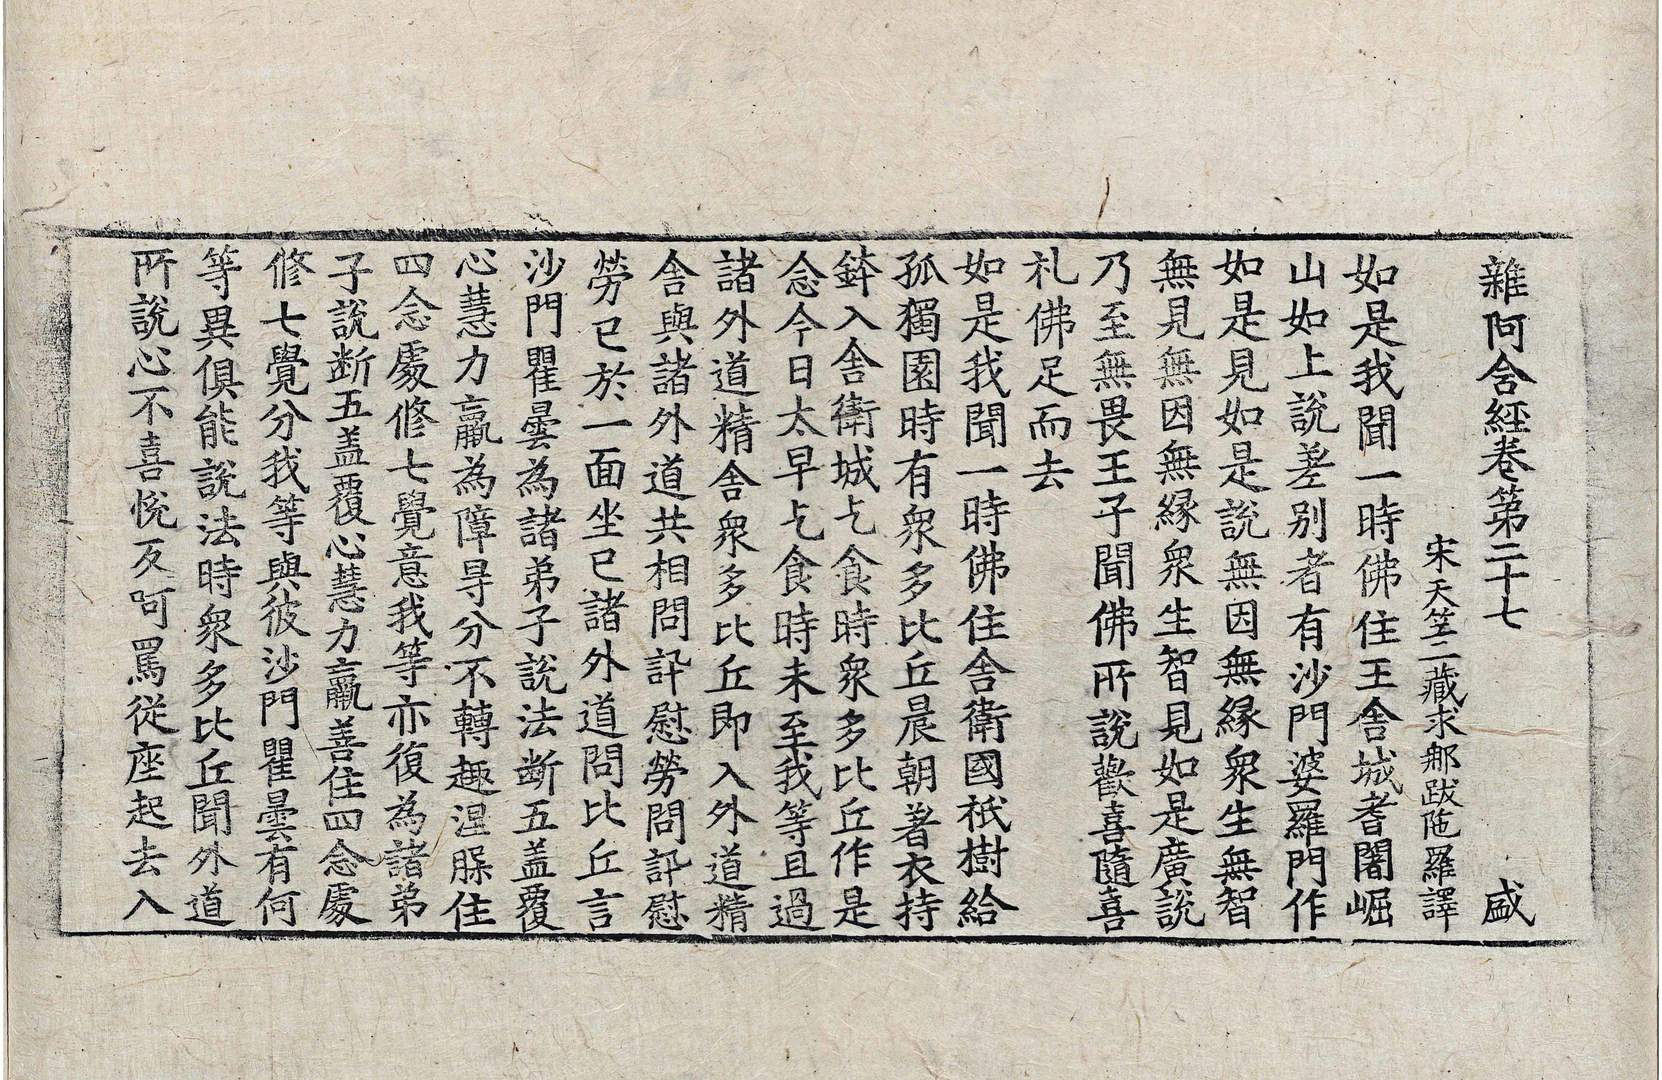 雜阿含經卷第二十七 盛
宋天竺三藏求𨚗跋陁羅譯
如是我聞一時佛住王舍城耆闍崛
山如上說差别者有沙門婆羅門作
如是見如是說無因無縁衆生無智
無見無因無縁衆生智見如是廣說
乃至無畏王子聞佛所說歡喜隨喜
礼佛足而去
如是我聞一時佛住舍衛國祇樹給
孤獨園時有衆多比丘晨朝著衣持
鉢入舍衛城乞食時衆多比丘作是
念今日太早乞食時未至我等且過
諸外道精舍衆多比丘即入外道精
舍與諸外道共相問訊慰勞問訊慰
勞已於一面坐已諸外道問比丘言
沙門瞿曇為諸弟子說法断五盖覆
心慧力羸為障㝵分不轉趣涅槃住
四念處修七覺意我等亦復為諸弟
子說断五盖覆心慧力羸善住四念處
修七覺分我等與彼沙門瞿曇有何
等異俱能說法時衆多比丘聞外道
所說心不喜悅反呵罵從座起去入